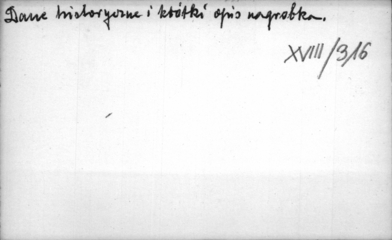 Dane historyczne i krótki opis nagrobka.
XVIII/316